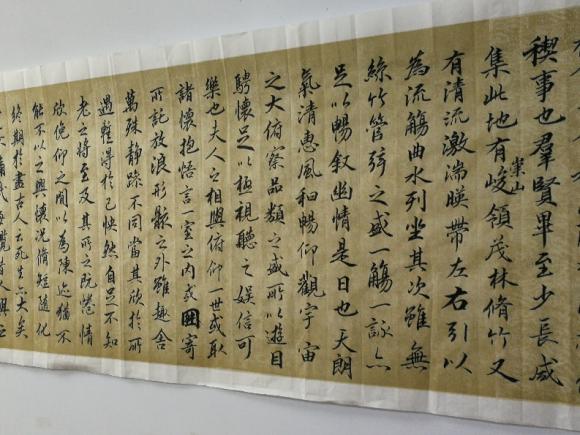 稧事也羣賢畢至少長咸
集此地有崇山峻領茂林脩竹又
有清流激湍暎帶左右引以
為流觴曲水列坐其次雖無
絲竹管弦之盛一觴一詠亦
足以暢敘幽情是日也天朗
氣清惠風和暢仰觀宇宙
之大俯察品類之盛所以遊目
騁懷足以極視聽之娛信可
樂也夫人之相與俯仰一世或取
諸懷抱悟言一室之內或因寄
所託放浪形骸之外雖趣舍
萬殊靜躁不同當其欣於所
遇暫得於己快然自足不知
老之將至及其所之既惓情
欣俛仰之間以為陳迹猶不
能不以之興懷況脩短隨化
終期於盡古人云死生亦大矣